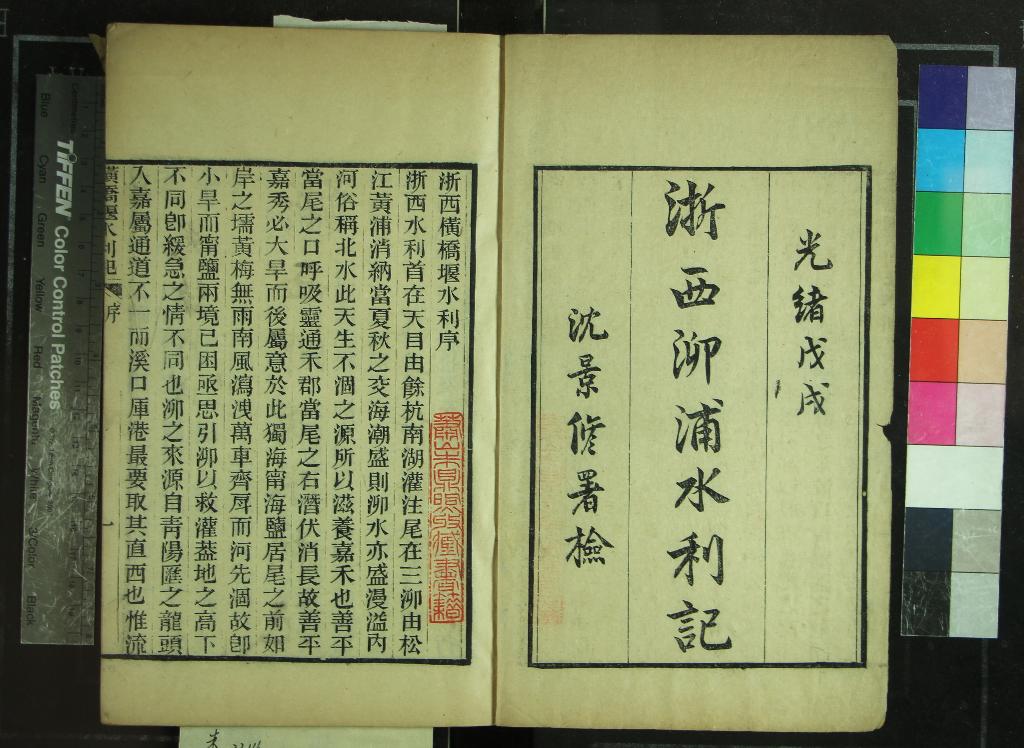 光緒戊戌
浙西泖浦水利記
沈景修署檢
浙西橫橋堰水利序
浙西水利首在天目由餘杭南湖灌注尾在三泖由松
江黃浦消納當夏秋之交海潮盛則泖水亦盛漫溢內
河俗稱北水此天生不涸之源所以滋養嘉禾也善平
當尾之口呼吸靈通禾郡當尾之右潛伏消長故善平
嘉秀必大旱而後屬意於此獨海甯海鹽居尾之前如
岸之壖黃梅無雨南風瀉洩萬車齊戽而河先涸故卽
小旱而甯鹽兩境已困亟思引泖以救灌葢地之高下
不同卽緩急之情不同也泖之來源自靑陽匯之龍頭
入嘉屬通道不一而溪口厙港最要取其直西也惟流
橫橋堰水利記 序 一
蕭山朱鼎煦收藏書籍
TIFFEN Color Control Patches
Blue
Cyan
Green
Yellow
Red
Magenta
White
3/Color
Black